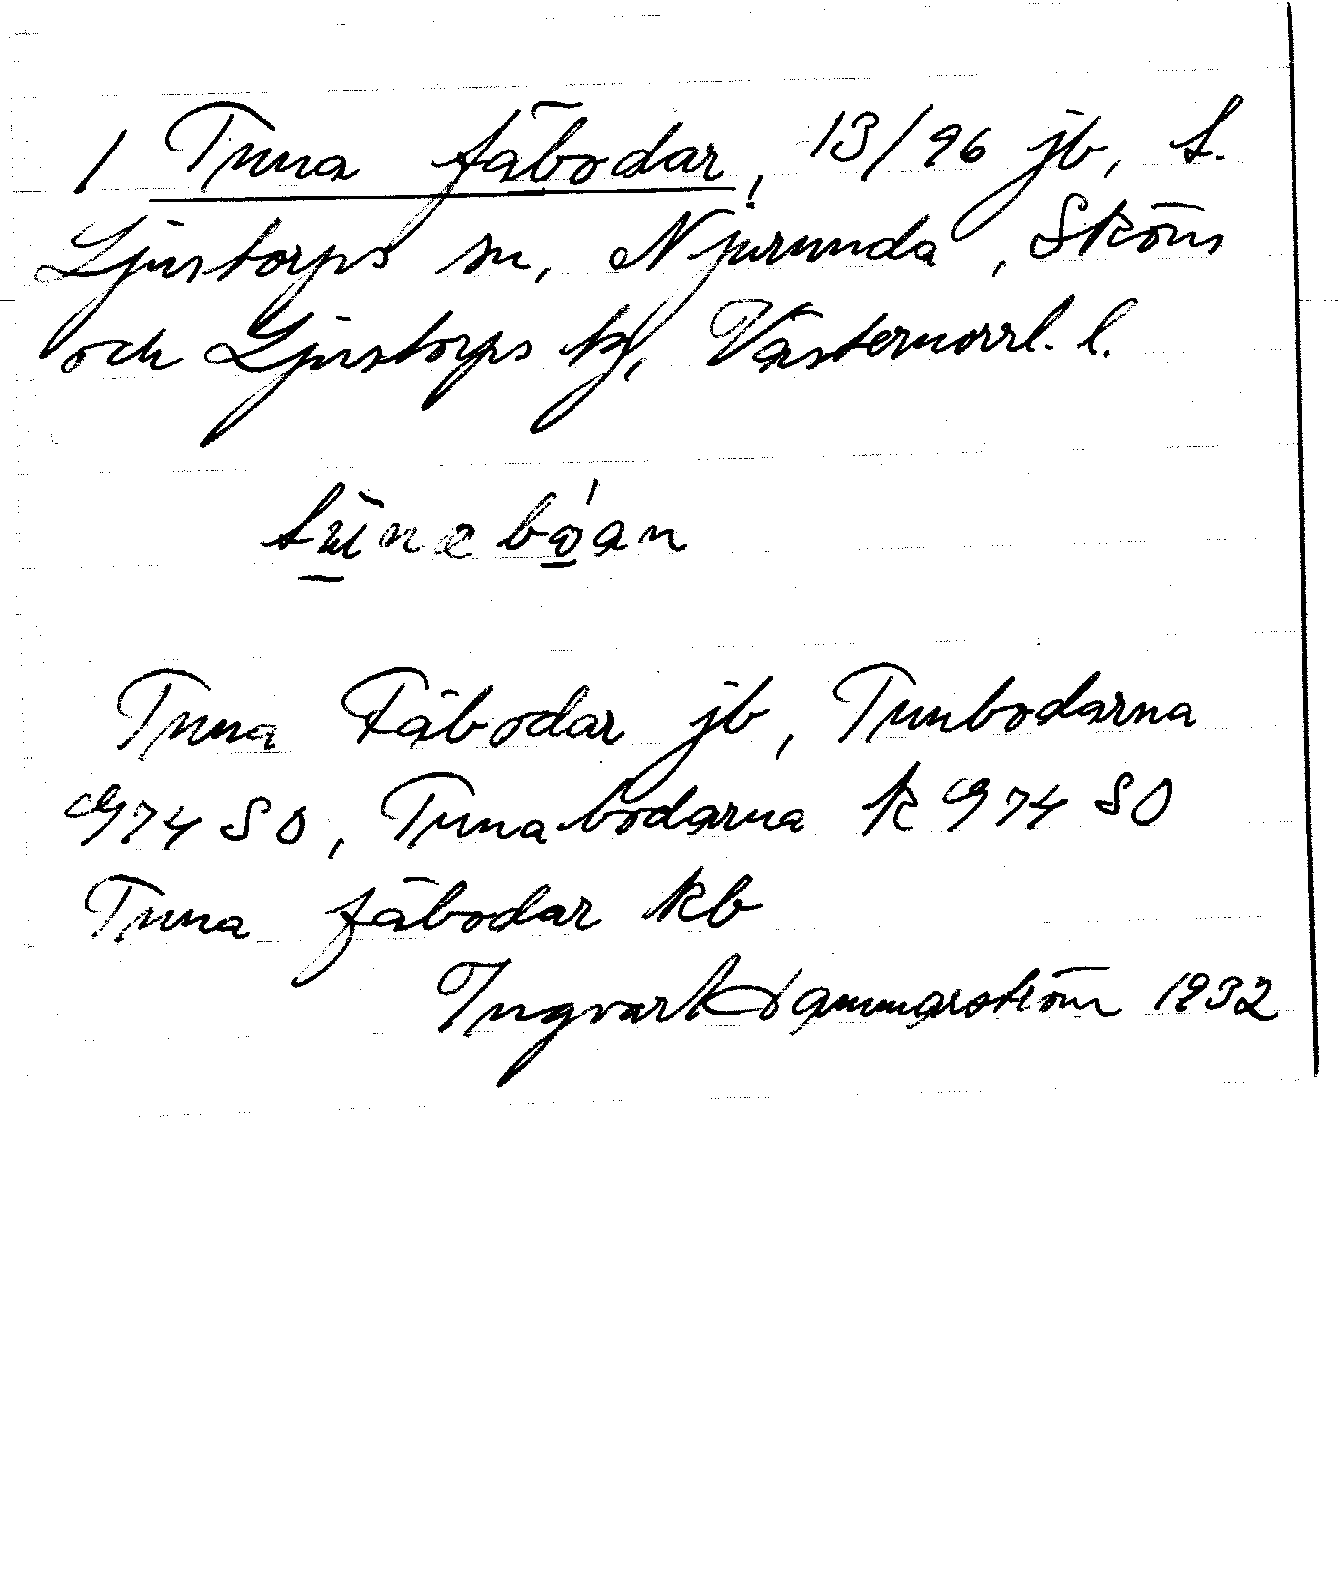 1 Tuna fäbodar, 13/96 jb, s.
Ljustorps sn, Njurunda, Sköns
och Ljustorps tg, Västernorrl. l.
bóan
Tuna Fäbodar jb, Tunbodarna
G74 SO, Tunabodarna K G74 SO
Tuna fäbodar kb
Ingvar Hammarström 1932